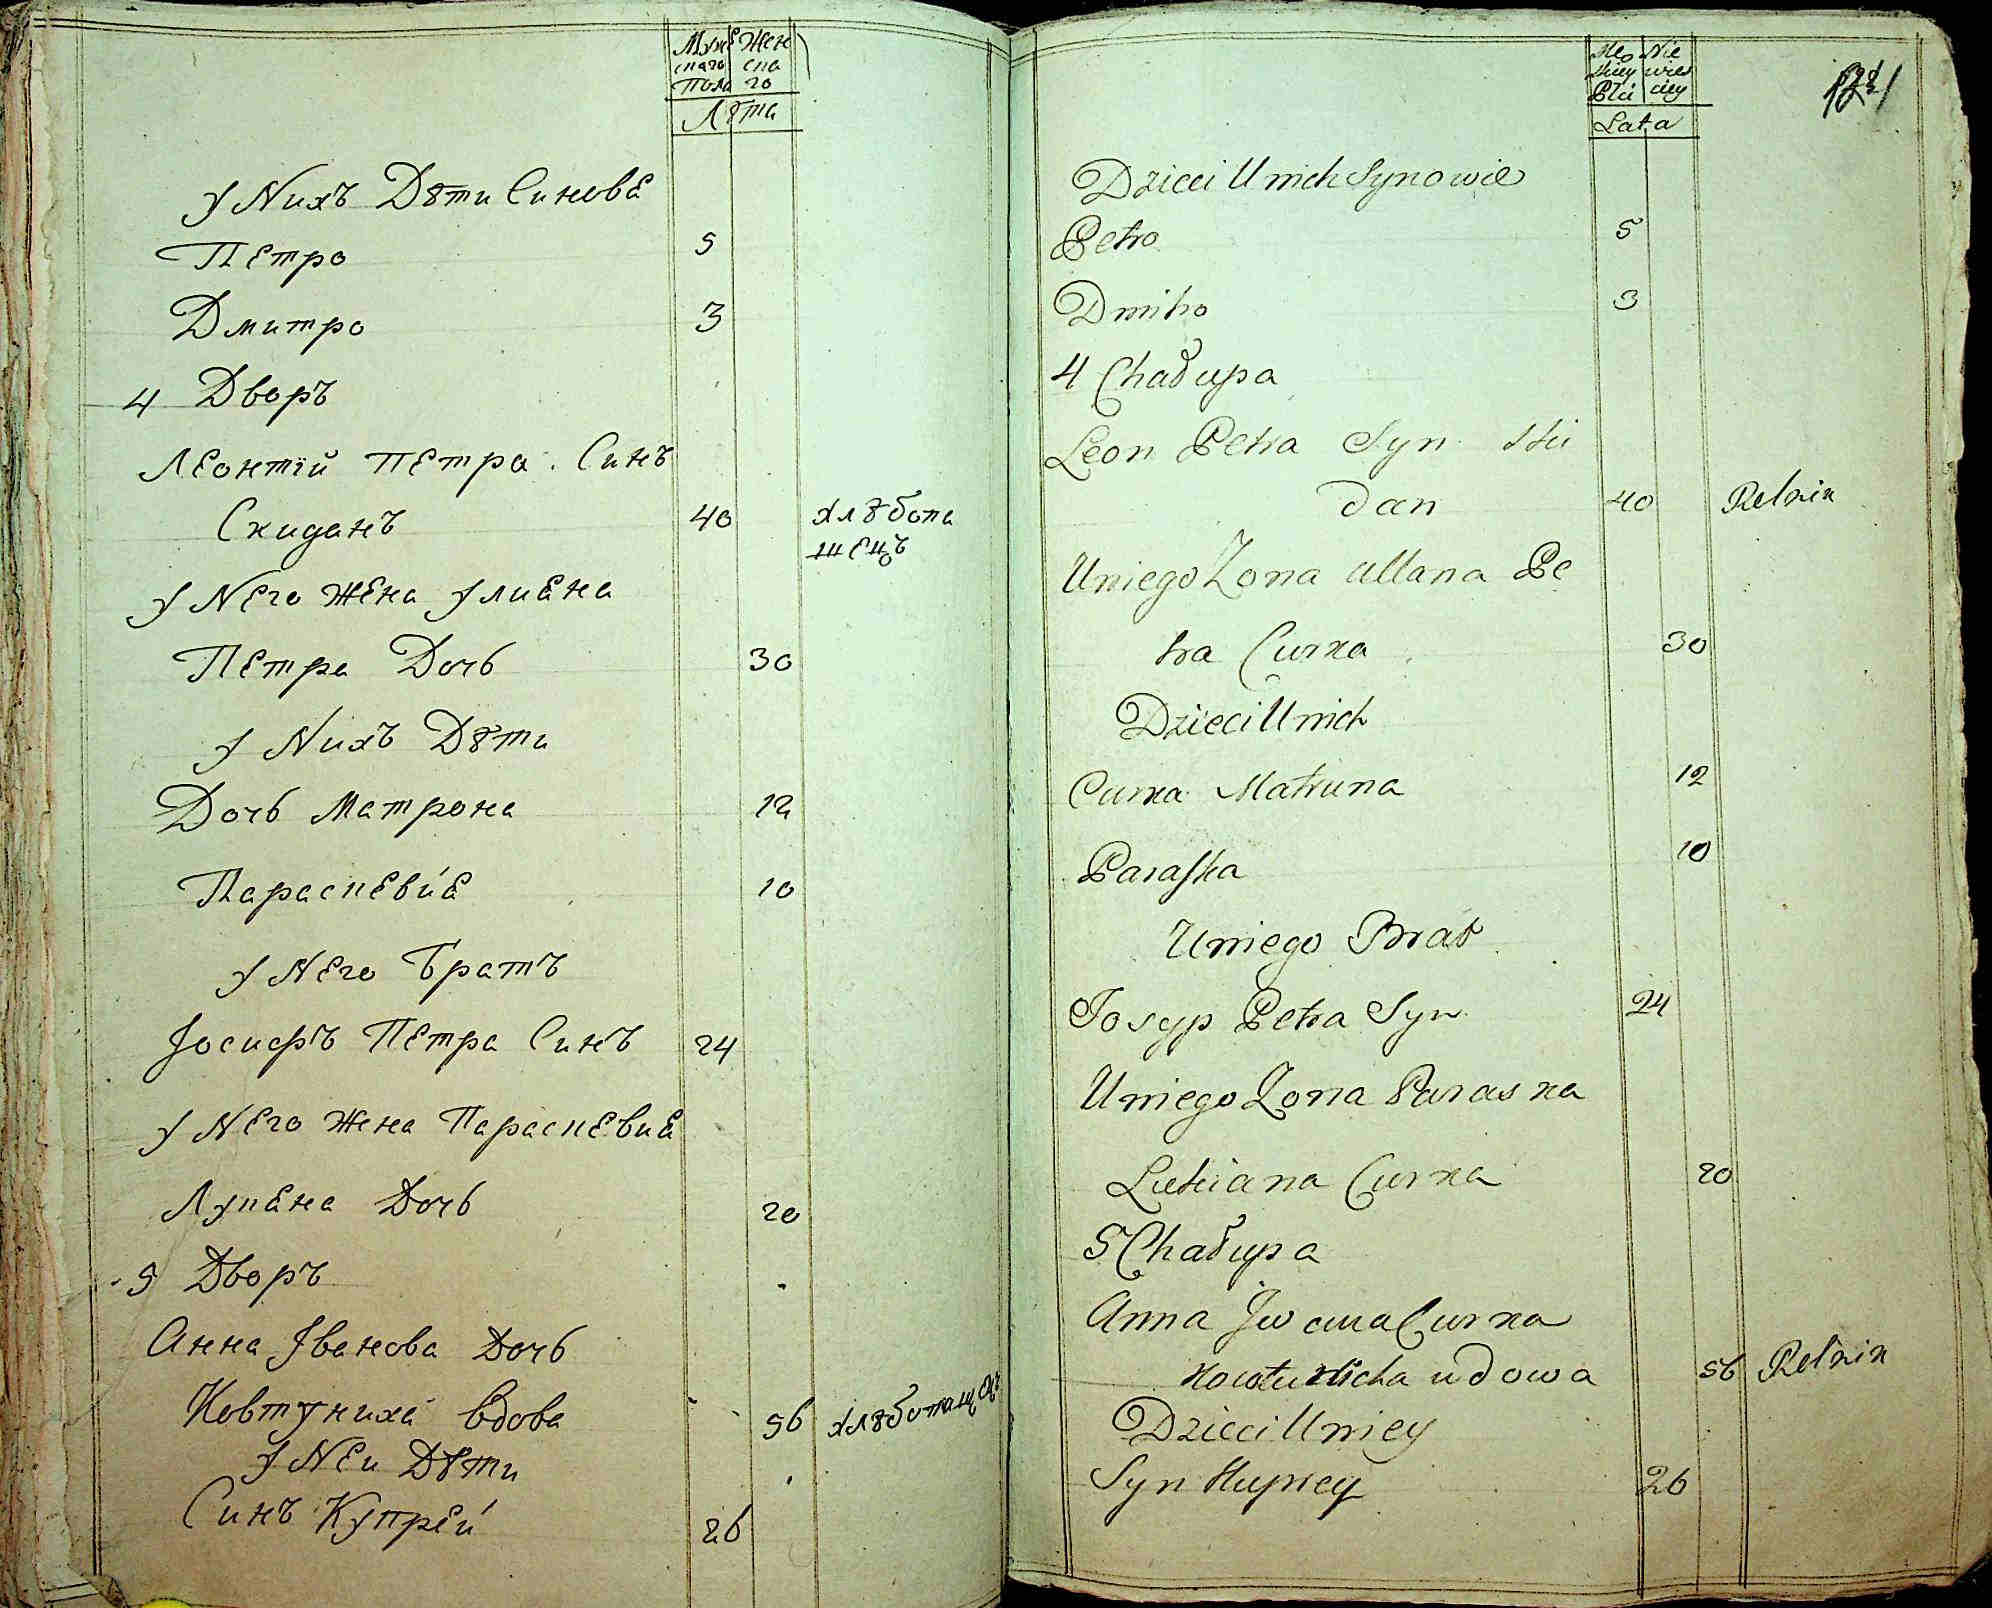 Муже Жен
скаго ска
Пола го
Лѣта
У Нихъ Дѣти Синове
Петро 5
Дмитро 3
4 Дворъ
Леонтій Петра Синъ
Скиданъ 40 хлѣбопа
шецъ
У Него Жена Улиана
Петра Дочь 30
У Нихъ Дѣти
Дочь Матрона 12
Параскевиа 10
У Него Братъ
Іосифъ Петра Синъ 24
У Него Жена Параскевиа
Лукана Дочь 20
5 Дворъ
Анна Іванова Дочь
Ковтуниха Вдова 56
У Неи Дѣти
Синъ Купреи 26
Męs Nie
skiey wies
Płci ciey
Lata
Dzieci U nich Synowie
Petro 5
Dmitro 3
4 Chałupa
Leon Petra Syn Ski
dan 40 Rolnik
U niego Żona Ullana Pe
tra Curka 30
Dzieci U nich
Curka Matruna 12
Paraska 10
U niego Brat
Josyp Petra Syn 24
U niego Żona Paraska
Curka 20
5 Chałupa
Anna Jwana Curka
udowa 56 Rolnik
Dzieci U niey
Syn Kuprey 26